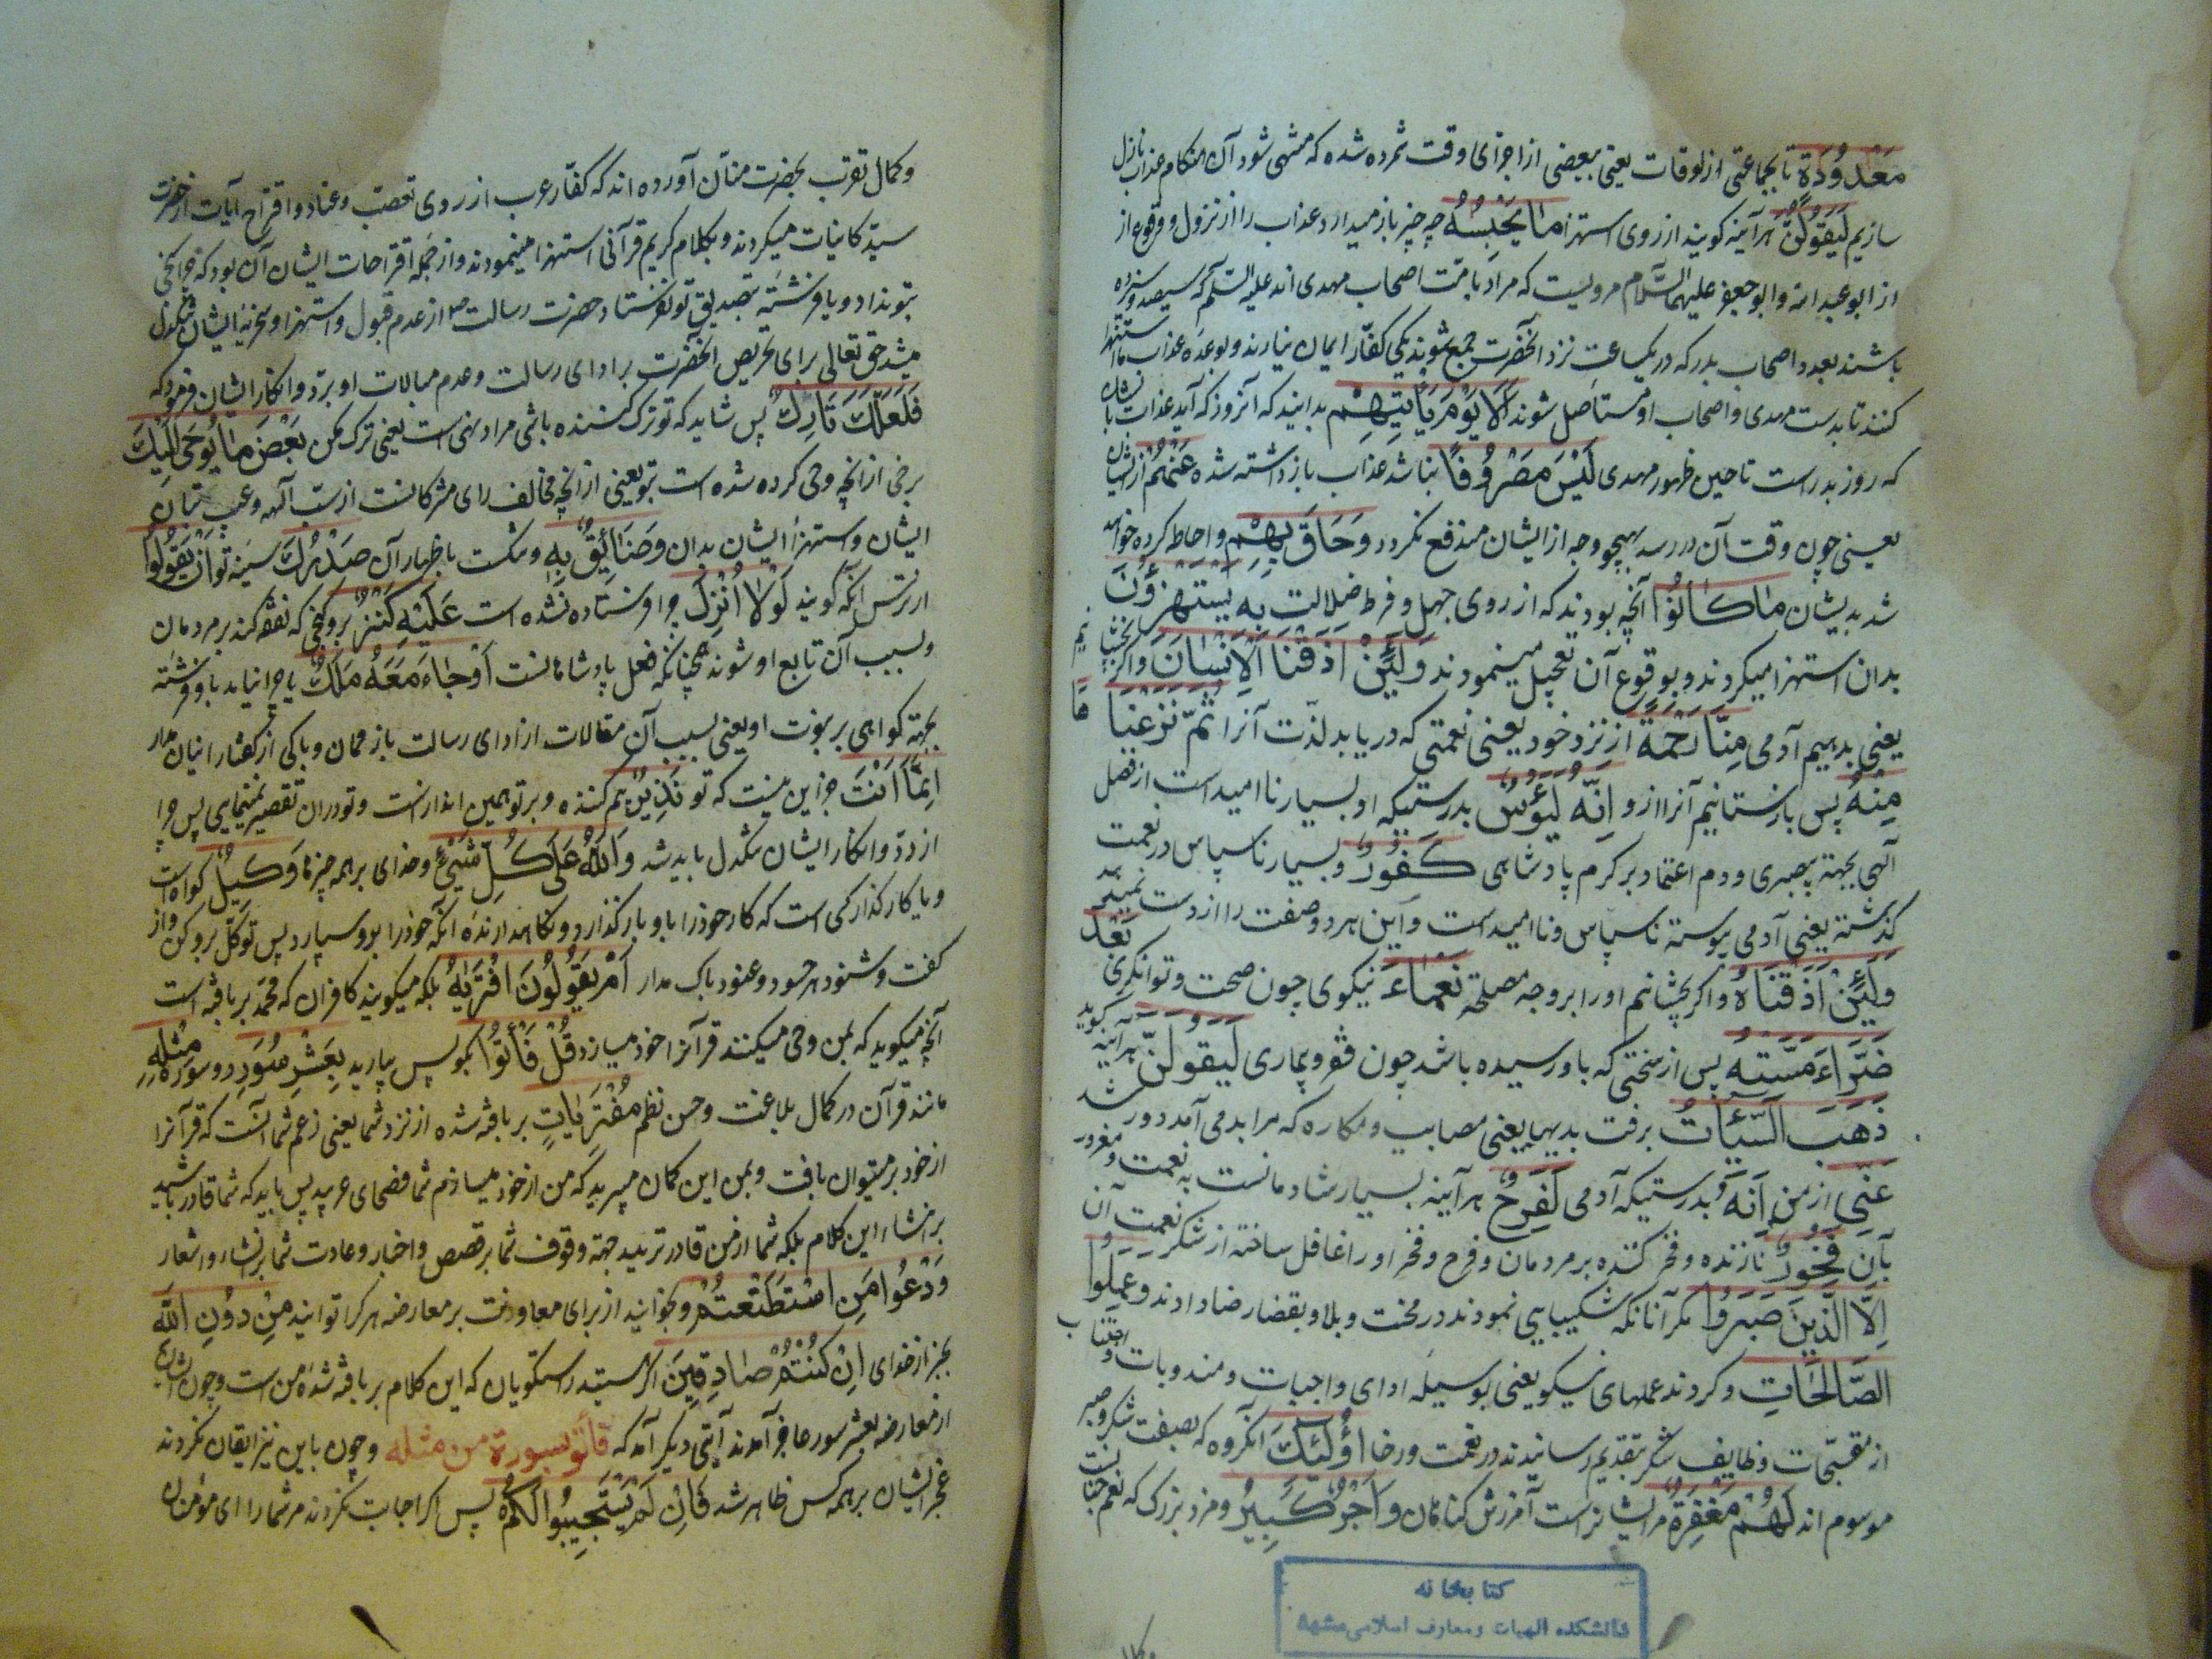 معدودة تا بجماعتی از اوقات یعنی ببعضی از اجزای وقت شمرده شده که منتهی شود آن هنکام عذاب نازل
سازیم لیقولن هرآینه کویند از روی استهزا ما یحبسه چه چیز باز میدارد عذاب را از نزول و وقوع از
از ابو عبد الله و ابو جعفر علیهما السلام مرویست که مراد بامت اصحاب مهدی اند علیه السلم که سیصد و سیزده
باشند بعدد اصحاب بدر که در یکساعت نزد آنحضرت جمع شوند یکی کفار ایمان نیارند و بوعده عذاب ما استهزا
کنند تا بدست مهدی و اصحاب او مستأصل شوند الا یوم یاتیهم بدانید که آنروز که آید عذاب بایشان
که روز بدر است تا حین ظهور مهدی لیس مصروفا نباشد عذاب باز داشته شده عنهم از ایشان
یعنی چون وقت آن در رسد بهیچ وجه از ایشان مندفع نکردد و حاق بهم و احاطه کرده خواهد
شد بدیشان ما کانوا آنچه بودند که از روی جهل و فرط ضلالت به یستهزؤن
بدان استهزا میکردند و بوقوع آن تعجیل مینمودند و لئن اذقنا الانسان و اکر بچشانیم
یعنی بدهیم آدمی منا رحمة از نزد خود یعنی نعمتی که دریابد لذت آنرا ثم نزعناها
منه پس باز ستانیم آنرا ازو انه لیؤس بدرستیکه او بسیار ناامید است از فضل
الهی بجهة بیصبری و عدم اعتماد بر کرم پادشاهی کفور و بسیار ناسپاس در نعمت
کذشته یعنی آدمی پیوسته ناسپاس و ناامید است و این هر دو صفت را از دست نمیدهد
و لئن اذقناه و اکر بچشانیم او را بر وجه مصلحة نعماء نیکوی چون صحت و توانکری بعد
ضراء مسته پس از سختی که باو رسیده باشد چون فقر و بیماری لیقولن هرآینه کوید
ذهب السیئات برفت بدیها یعنی مصایب و مکاره که مرا بد می آمد دور شد
عنی از من انه بدرستیکه آدمی لفرح هرآینه بسیار شادمانست به نعمت و مغرور
بآن فخور نازنده و فخر کننده بر مردمان و فرح و فخر او را غافل ساخته از شکر نعمت آن
الا الذین صبروا مکر آنانکه شکیبایی نمودند در محنت و بلا و بقضا رضا دادند و عملوا
الصالحات و کردند عملهای نیکو یعنی بوسیله ادای واجبات و مندوبات و اجتناب
از مقبحات وظایف شکر بتقدیم رسانیدند در نعمت و رخا اولئک آنکروه که بصفت شکر و صبر
موسوم اند لهم مغفرة مر ایشانراست آمرزش کناهان و اجر کبیر و مزد بزرک که نعم جنانست
کتابخانه
دانشکده الهیات و معارف اسلامی مشهد
و کمال تقرب بحضرت منان آورده اند که کفار عرب از روی تعصب و عناد و اقتراح آیات از حضرت
سید کاینات میکردند و بکلام کریم قرآنی استهزا مینمودند و از جمله اقتراحات ایشان آن بود که چرا کنجی
بتو نداد و یا فرشته بتصدیق تو نفرستاد حضرت رسالت ص از عدم قبول و استهزا و سخریه ایشان تنکدل
میشد حق تعالی برای تحریص آنحضرت بر ادای رسالت و عدم مبالات او برد و انکار ایشان فرمود که
فلعلک تارک پس شاید که تو ترک کننده باشی مراد نهی است یعنی ترک مکن بعض ما یوحی الیک
برخی از آنچه وحی کرده شده است بتو یعنی از آنچه مخالف رای مشرکانست از سب آلهه و عیب بتان
ایشان و استهزا ایشان بدان و ضائق به و تنکست باظهار آن صدرک سینه تو ان یقولوا
از ترس آنکه کویند لولا انزل چرا فرستاده نشده است علیه کنز برو کنجی که نفقه کند بر مردمان
و بسبب آن تابع او شوند همچنانکه فعل پادشاهانست او جاء معه ملک یا چرا نیاید با وی فرشته
بجهة کواهی بر نبوت او یعنی بسبب آن مقالات از ادای رسالت باز ممان و باکی از کفتار اینان مدار
انما انت جز این نیست که تو نذیر بیم کننده و بر تو همین انذارست و تو در ان تقصیر نمینمایی پس چرا
از رد و انکار ایشان تنکدل باید شد و الله علی کل شیء و خدای بر همه چیزها وکیل کواه است
و یا کارکذار کسی است که کار خود را باو باز کذارد و نکاهدارنده آنکه خود را بدو سپارد پس توکل برو کن و از
کفت و شنود هر حسود و عنود باک مدار ام یقولون افتریه بلکه میکویند کافران که محمد بربافته است
آنچه میکوید که بمن وحی میکنند قرآنرا خود میسازد قل فأتوا بکو پس بیارید بعشر سور ده سوره مثله
مانند قرآن در کمال بلاغت و حسن نظم مفتریات بربافته شده از نزد شما یعنی زعم شما آنست که قرآنرا
از خود بر میتوان بافت و بمن این کمان میبرید که من از خود میسازم شما فصحای عربید پس باید که شما قادر باشید
بر انشاء این کلام بلکه شما از من قادر ترید بجهة وقوف شما بر قصص و اخبار و عادت شما بر انشاء و اشعار
و ادعوا من استطعتم و بخوانید از برای معاونت بر معارضه هر کرا توانید من دون الله
بجز از خدای ان کنتم صادقین اکر هستید راستکویان که این کلام بربافته شده من است و چون ایشان
از معارضه بعشر سور عاجز آمدند آیتی دیکر آمد که فأتو بسورة من مثله و چون باین نیز ایقان نکردند
عجز ایشان بر همه کس ظاهر شد فان لم یستجیبوا لکم پس اکر اجابت نکردند مر شما را ای مؤمنان